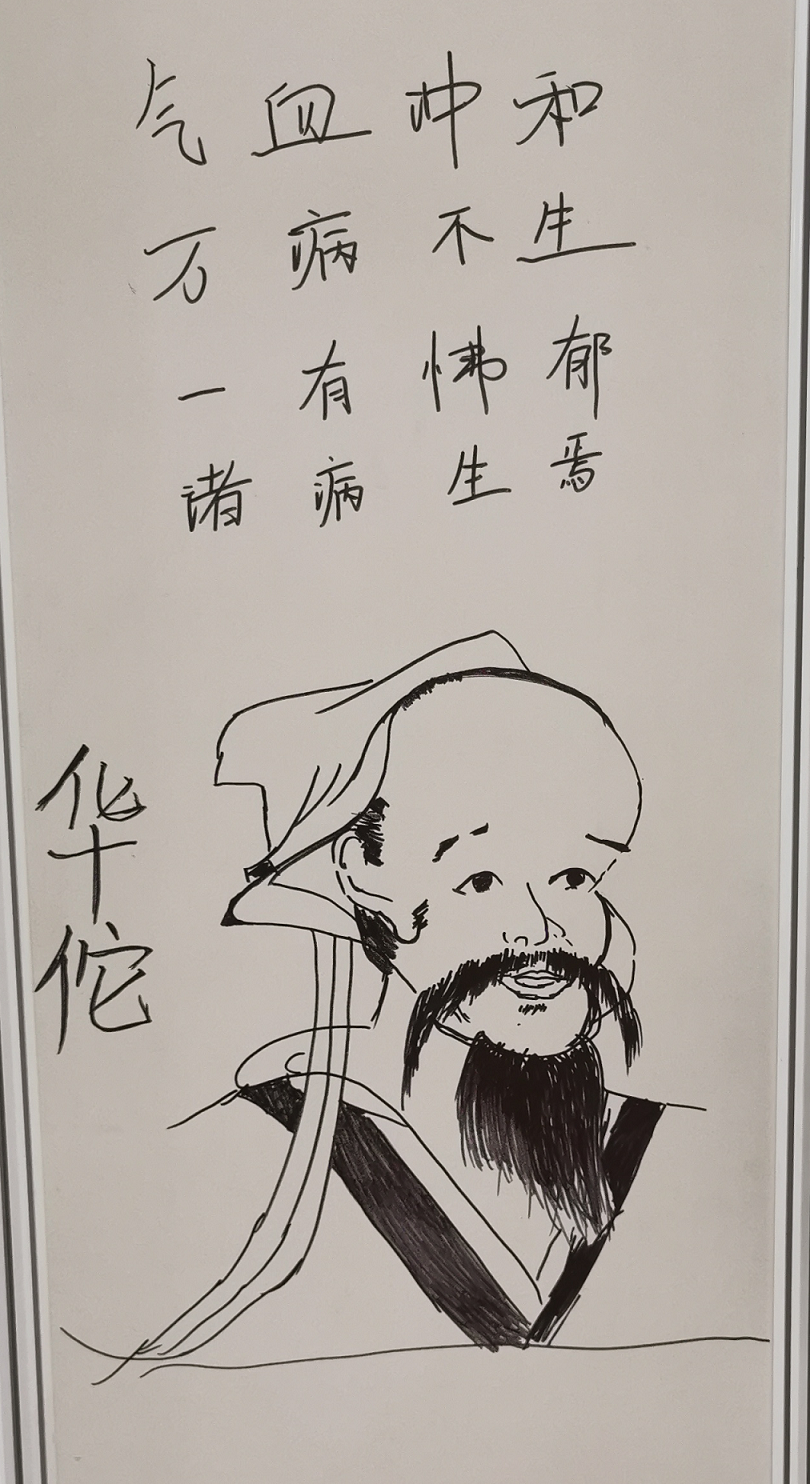 气血冲和
万病不生
一有怫郁
诸病生焉
华佗